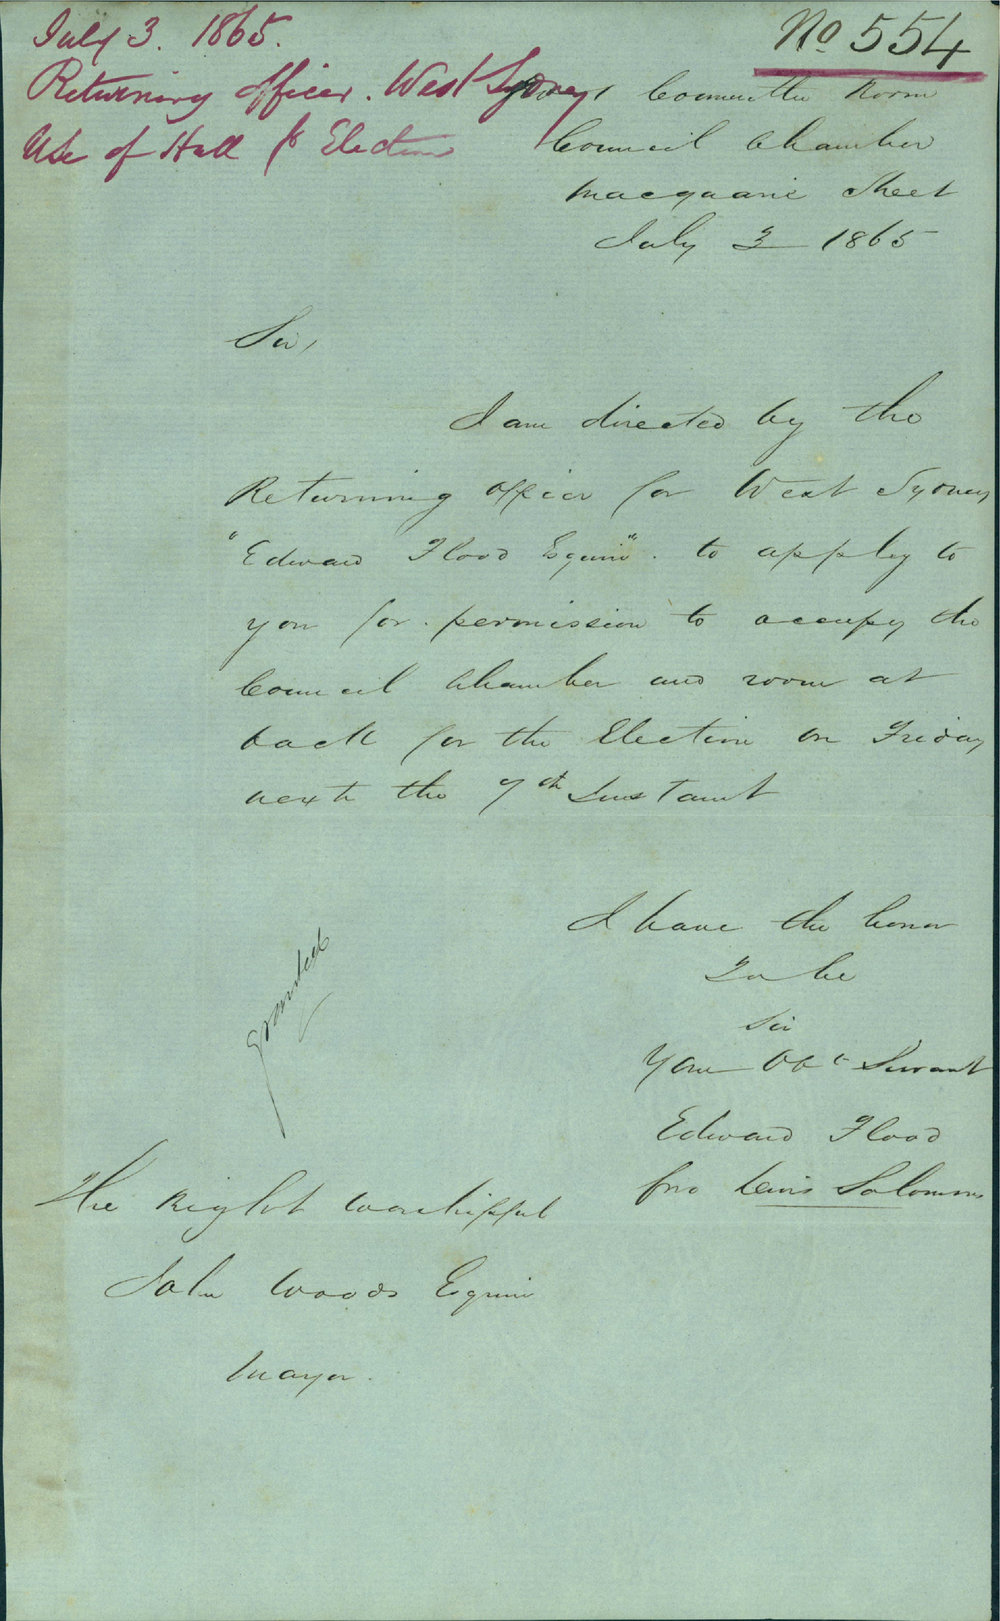 July 3. 1865.
Returning officer. West Sydney
Use of Hall for Election
No 554
Committee Room
Council Chamber
Macquarie Street
July 3 1865
Sir,
I am directed by the
Returning officer for West Sydney
"Edward Flood Esquire". to apply to
you for permission to occupy the
Council Chamber and room at
back for the Election on Friday
next the 7th Instant
I have the honor
To be
Sir
Your Obt Servant
Edward Flood
pro Lewis Solomons
granted
The Right Worshipful
John Woods Esquire
Mayor.